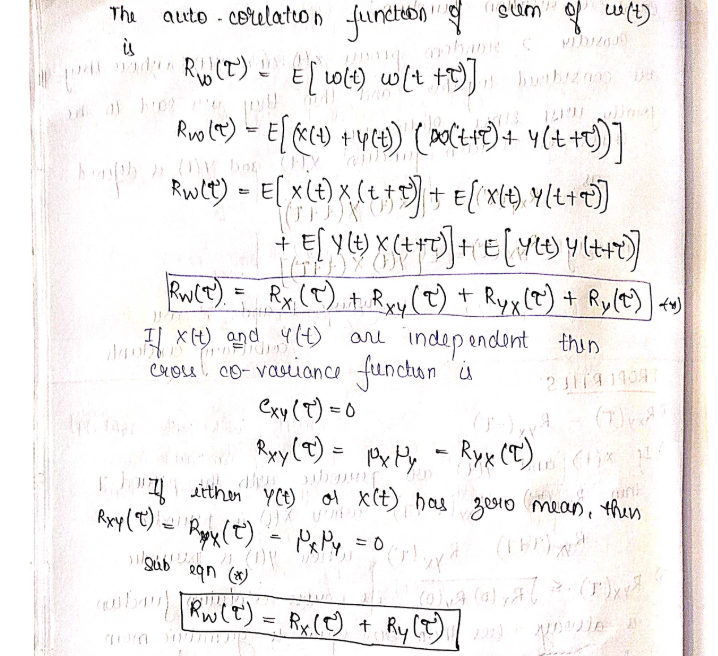 The auto-corelation function of sum of w(t)
is
Rw(τ) = E[w(t) w(t+τ)]
Rw(τ) = E[(x(t) + y(t)) (x(t+τ) + y(t+τ))]
Rw(τ) = E[x(t) x(t+τ)] + E[x(t) y(t+τ)]
+ E[y(t) x(t+τ)] + E[y(t) y(t+τ)]
Rw(τ) = Rx(τ) + Rxy(τ) + Ryx(τ) + Ry(τ) -(*)
If x(t) and y(t) are independent then
cross co-variance function is
Cxy(τ) = 0
Rxy(τ) = μx μy = Ryx(τ)
If either y(t) or x(t) has zero mean, then
Rxy(τ) = Ryx(τ) = μx μy = 0
sub eqn (*)
Rw(τ) = Rx(τ) + Ry(τ)